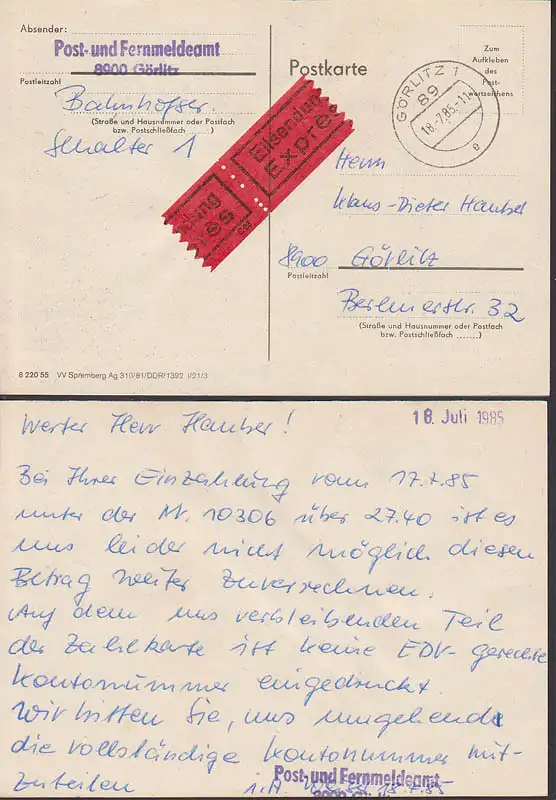 Absender:
Post- und Fernmeldeamt
8900 Görlitz
Postleitzahl
Bahnhofstr.
(Straße und Hausnummer oder Postfach
bzw. Postschließfach )
Schalter 1
Postkarte
Zum
Aufkleben
des
Post-
wertzeichens
GÖRLITZ 1
89
18.-7.85.-11
e
Eilsendun
Expre
dung
es
Herrn
Klaus-Dieter Hauber
8900 Görlitz
Postleitzahl
Berlinerstr. 32
(Straße und Hausnummer oder Postfach
bzw. Postschließfach ........)
8 220 55 VV Spremberg Ag 310/81/DDR/1392 I/21/3
18. Juli 1985
Werter Herr Hauber!
Bei Ihrer Einzahlung vom 17.7.85
unter der Nr. 10306 über 27.40 ist es
uns leider nicht möglich diesen
Betrag weiter zuverrechnen.
Auf dem uns verbleibenden Teil
der Zahlkarte ist keine EDV-gerechte
Kontonummer eingedruckt.
Wir bitten Sie, uns umgehend
die vollständige Kontonummer mit-
zuteilen
Post- und Fernmeldeamt
i.A.